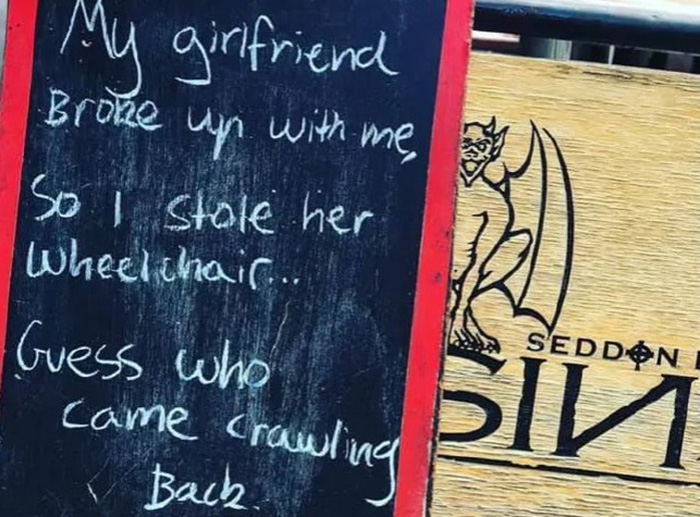 My girlfriend
Broke up with me,
So I stole her
Wheelchair...
Guess who
came crawling
Back.
SEDDON
SIN